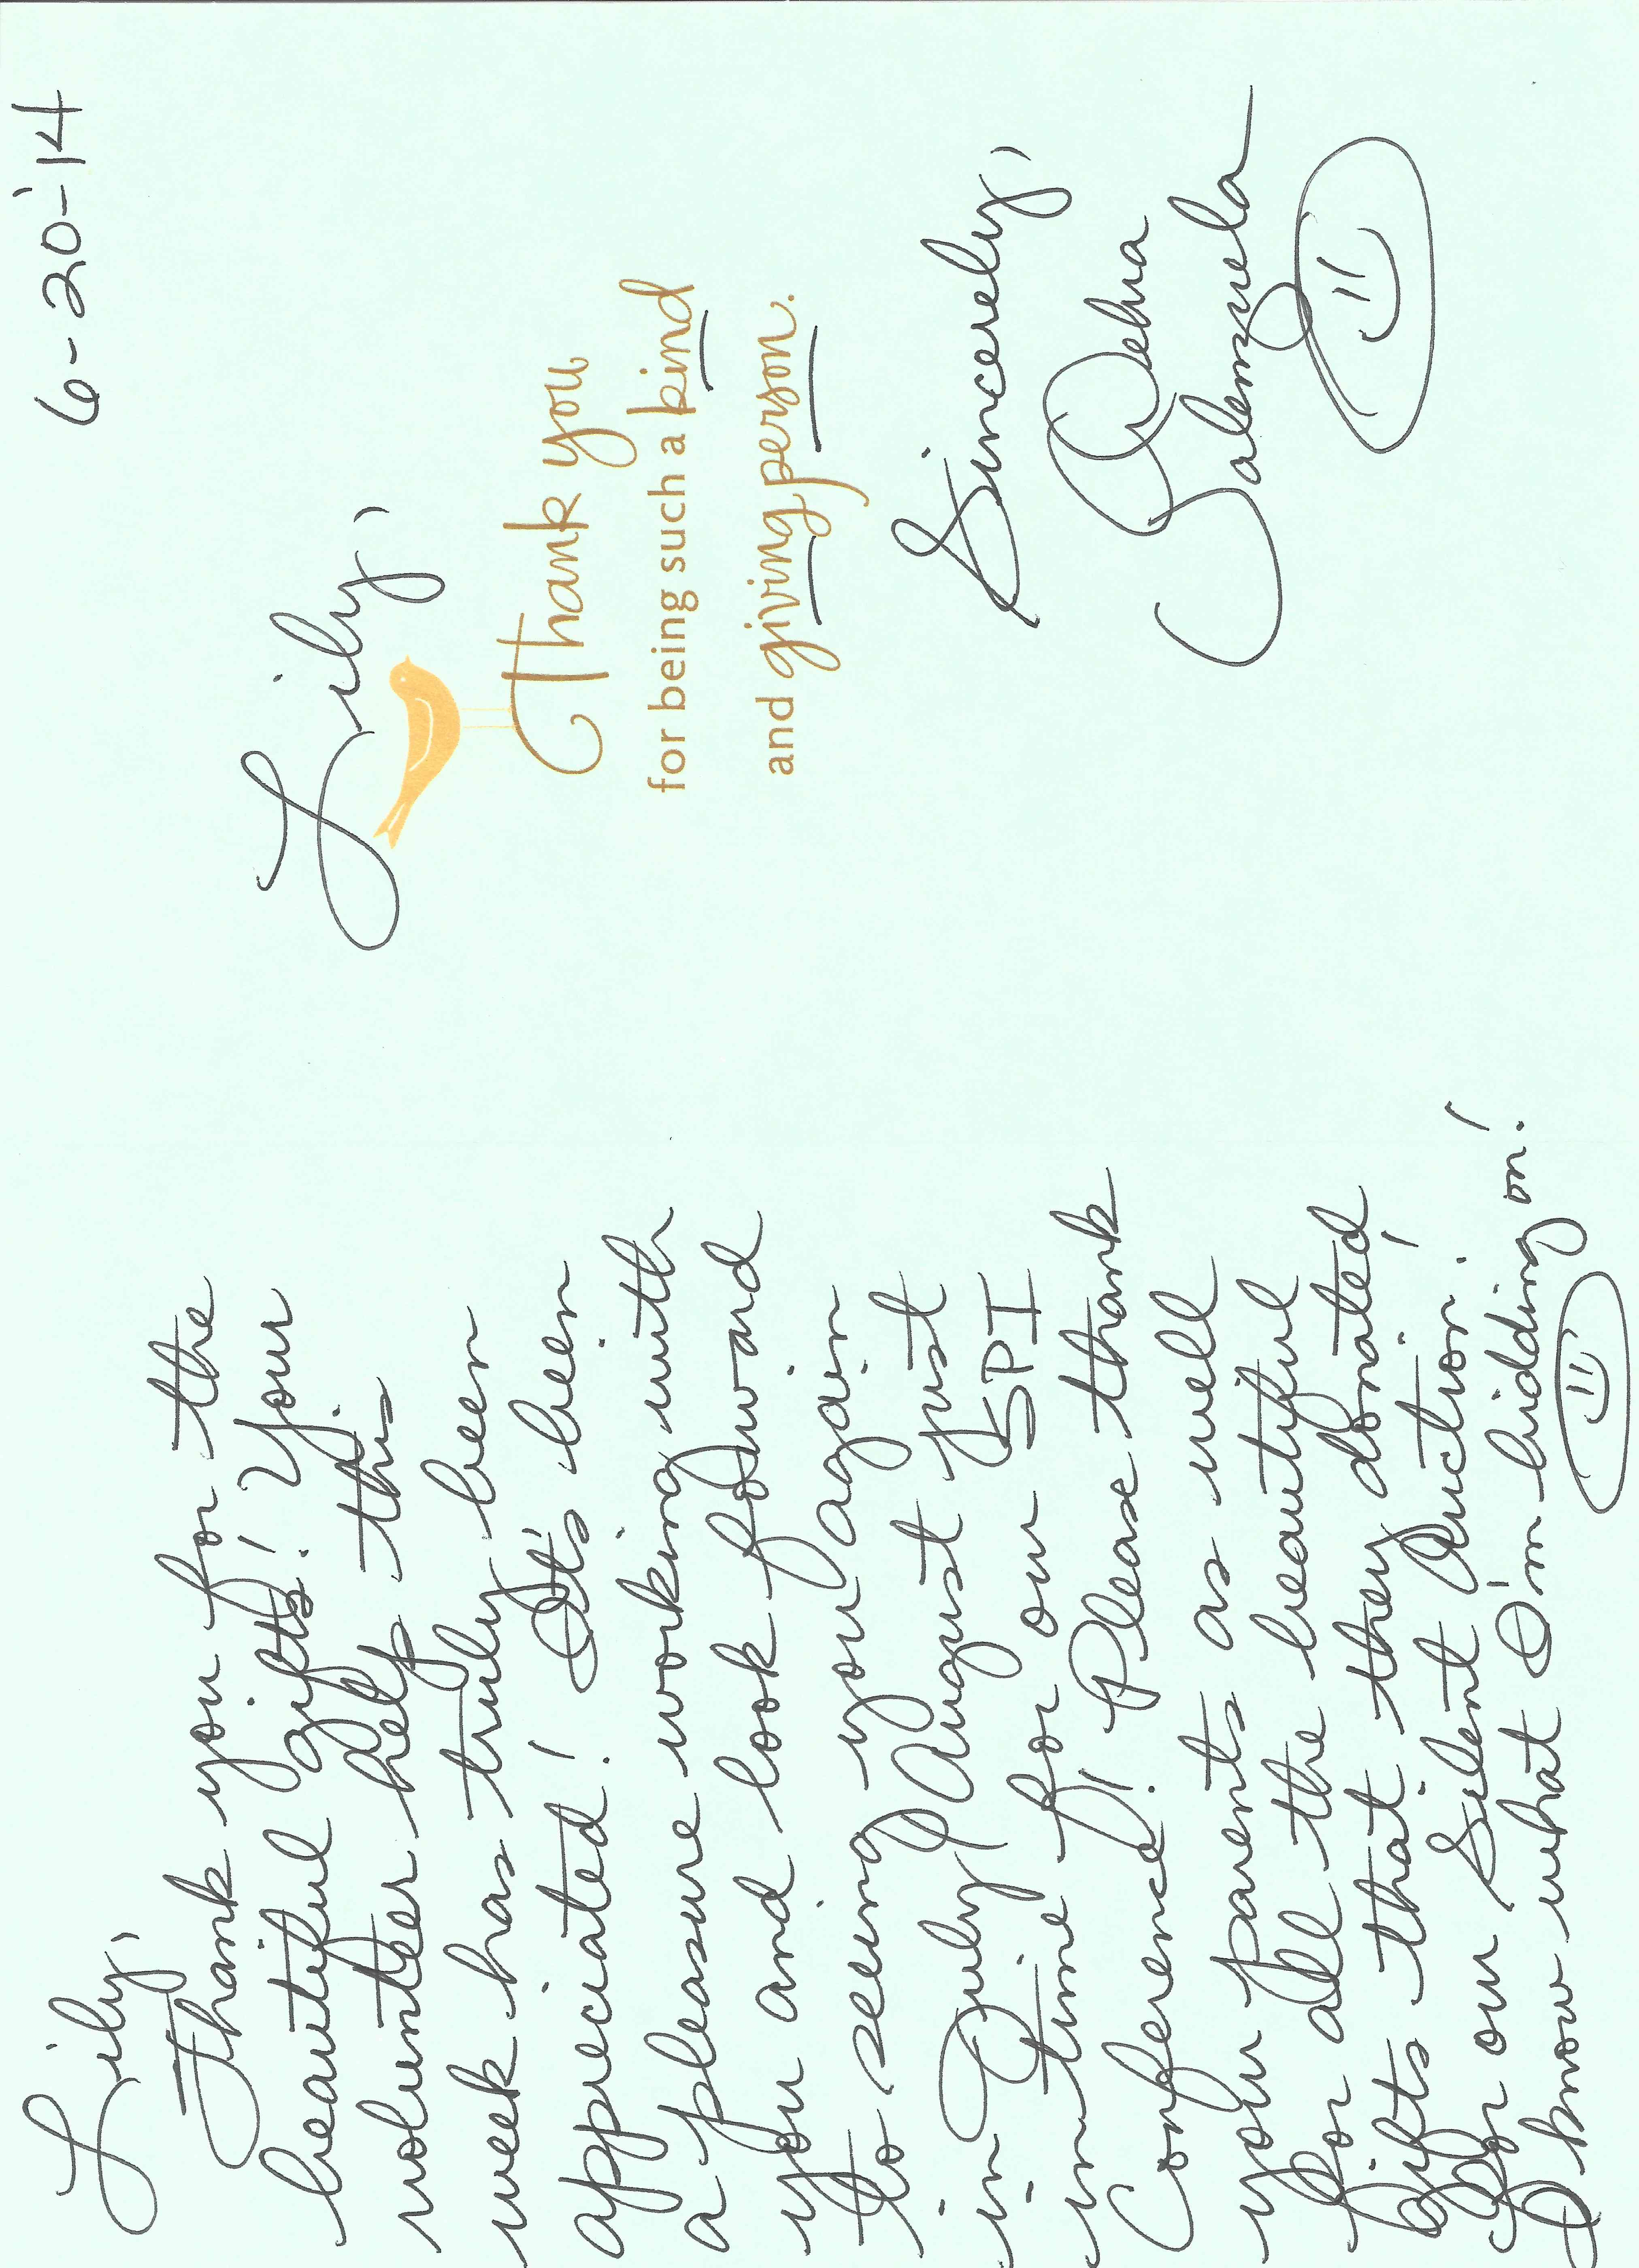 Lily,
Thank you for the
beautiful gifts! Your
volunteer help this
week has truly been
appreciated! It's been
a pleasure working with
you and look forward
to seeing you again
in July/August just
in time for our SPI
Conference! Please thank
your parents as well
for all the beautiful
gifts that they donated
for our Silent Auction!
I know what I'm bidding on!
6-20-'14
Lily,
Thank you
for being such a kind
and giving person.
Sincerely,
Delma
Valenzuela